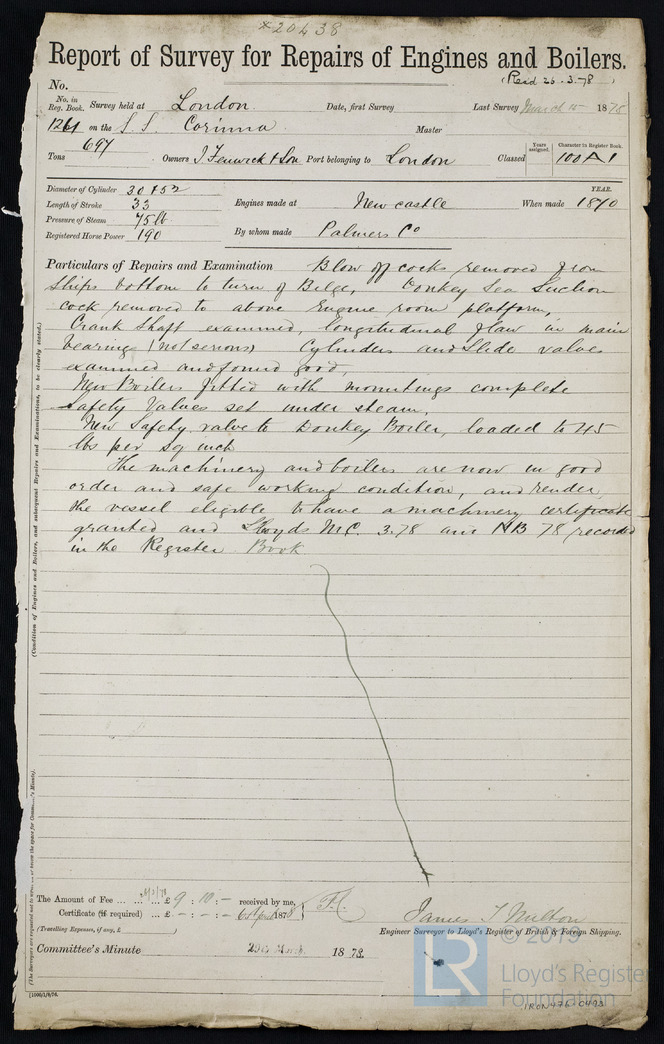 *20438
Report of Survey for Repairs of Engines and Boilers.
(Recd 26.3.78)
No.
No. in Reg. Book. Survey held at London Date, first Survey Last Survey March 15 1878
1261 on the S.S. Corinna Master
Tons 697 Owners J Fenwick & Son Port belonging to London Classed Years assigned. Character in Register Book. 100 A 1
Diameter of Cylinder 30 & 52
Length of Stroke 33
Pressure of Steam 75 lb
Registered Horse Power 190
Engines made at Newcastle When made YEAR. 1870
By whom made Palmers Co
Particulars of Repairs and Examination Blow off cocks removed from
Ships bottom to turn of Bilge, Donkey Sea Suction
cock removed to above Engine room platform,
Crank Shaft examined, longitudinal flaw in main
bearing (not serious) Cylinders and Slide valves
examined and found good,
New Boilers fitted with mountings complete
Safety Valves set under steam,
New Safety valve to Donkey Boiler, loaded to 45
lbs per sq inch
The machinery and boilers are now in good
order and safe working condition, and render
the vessel eligible to have a machinery certificate
granted and Lloyds M.C. 3.78 and NB 78 recorded
in the Register Book
(Condition of Engines and Boilers, and subsequent Repairs and Examinations, to be clearly stated.)
The Amount of Fee ... £ 9 : 10 : - received by me,
Certificate (if required) ... £ - : - : - 6 April 1878
(Travelling Expenses, if any, £ )
James T Milton
Engineer Surveyor to Lloyd's Register of British & Foreign Shipping.
Committee's Minute 29th March 1878.
[1000/1/8/76.
LR
© 2019
Lloyd's Register
Foundation
IRON476-0493